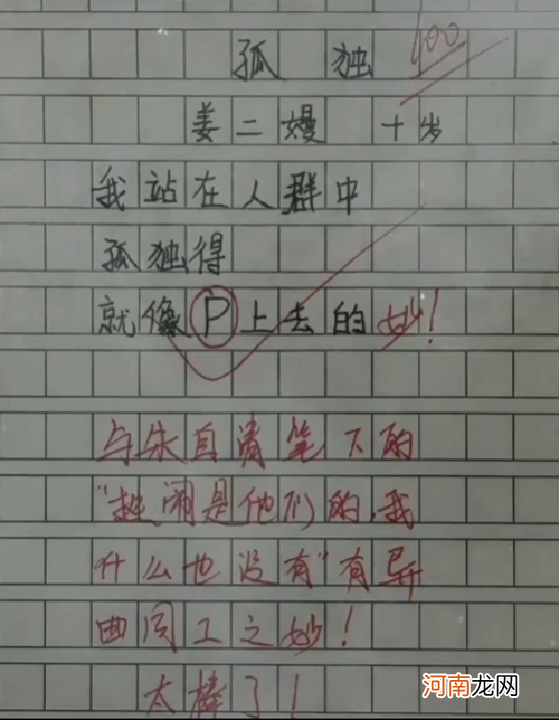 孤独 100
姜二嫚 十岁
我站在人群中
孤独得
就像P上去的 妙!
与朱自清笔下的
"热闹是他们的,我
什么也没有"有异
曲同工之妙!
太棒了!
河南龙网